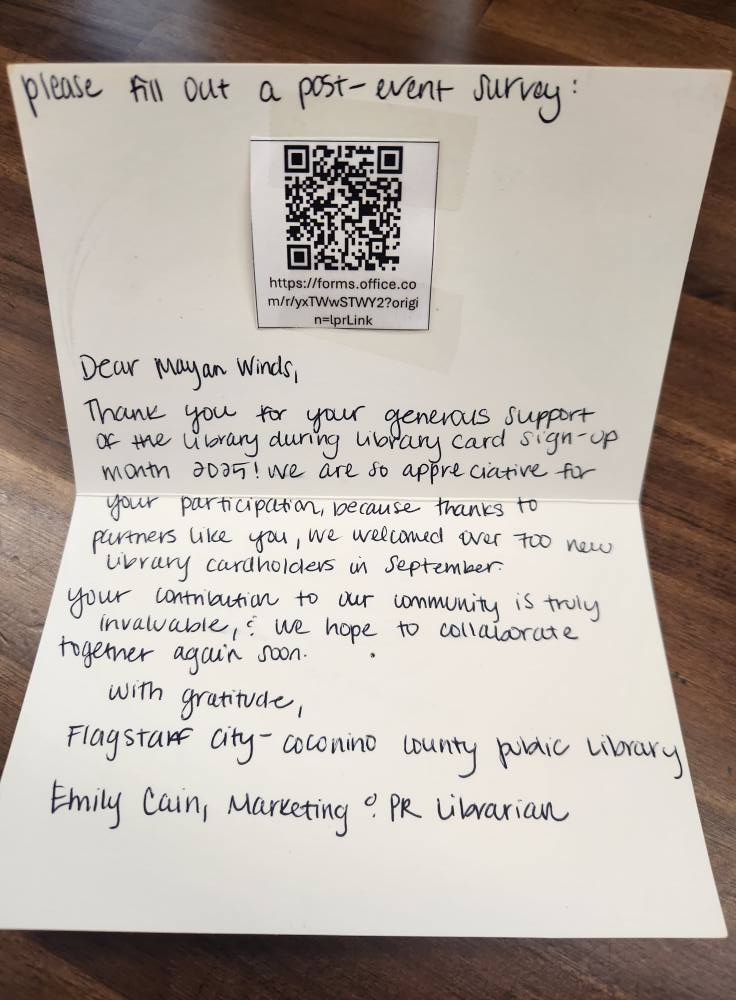 please fill out a post-event survey:
https://forms.office.co
m/r/yxTWwSTWY2?origi
n=lprLink
Dear Mayan Winds,
Thank you for your generous support
of the library during library card sign-up
month 2025! We are so appreciative for
your participation, because thanks to
partners like you, we welcomed over 700 new
library cardholders in September.
your contribution to our community is truly
invaluable, & we hope to collaborate
together again soon.
with gratitude,
Flagstaff City-Coconino County public Library
Emily Cain, Marketing & PR Librarian